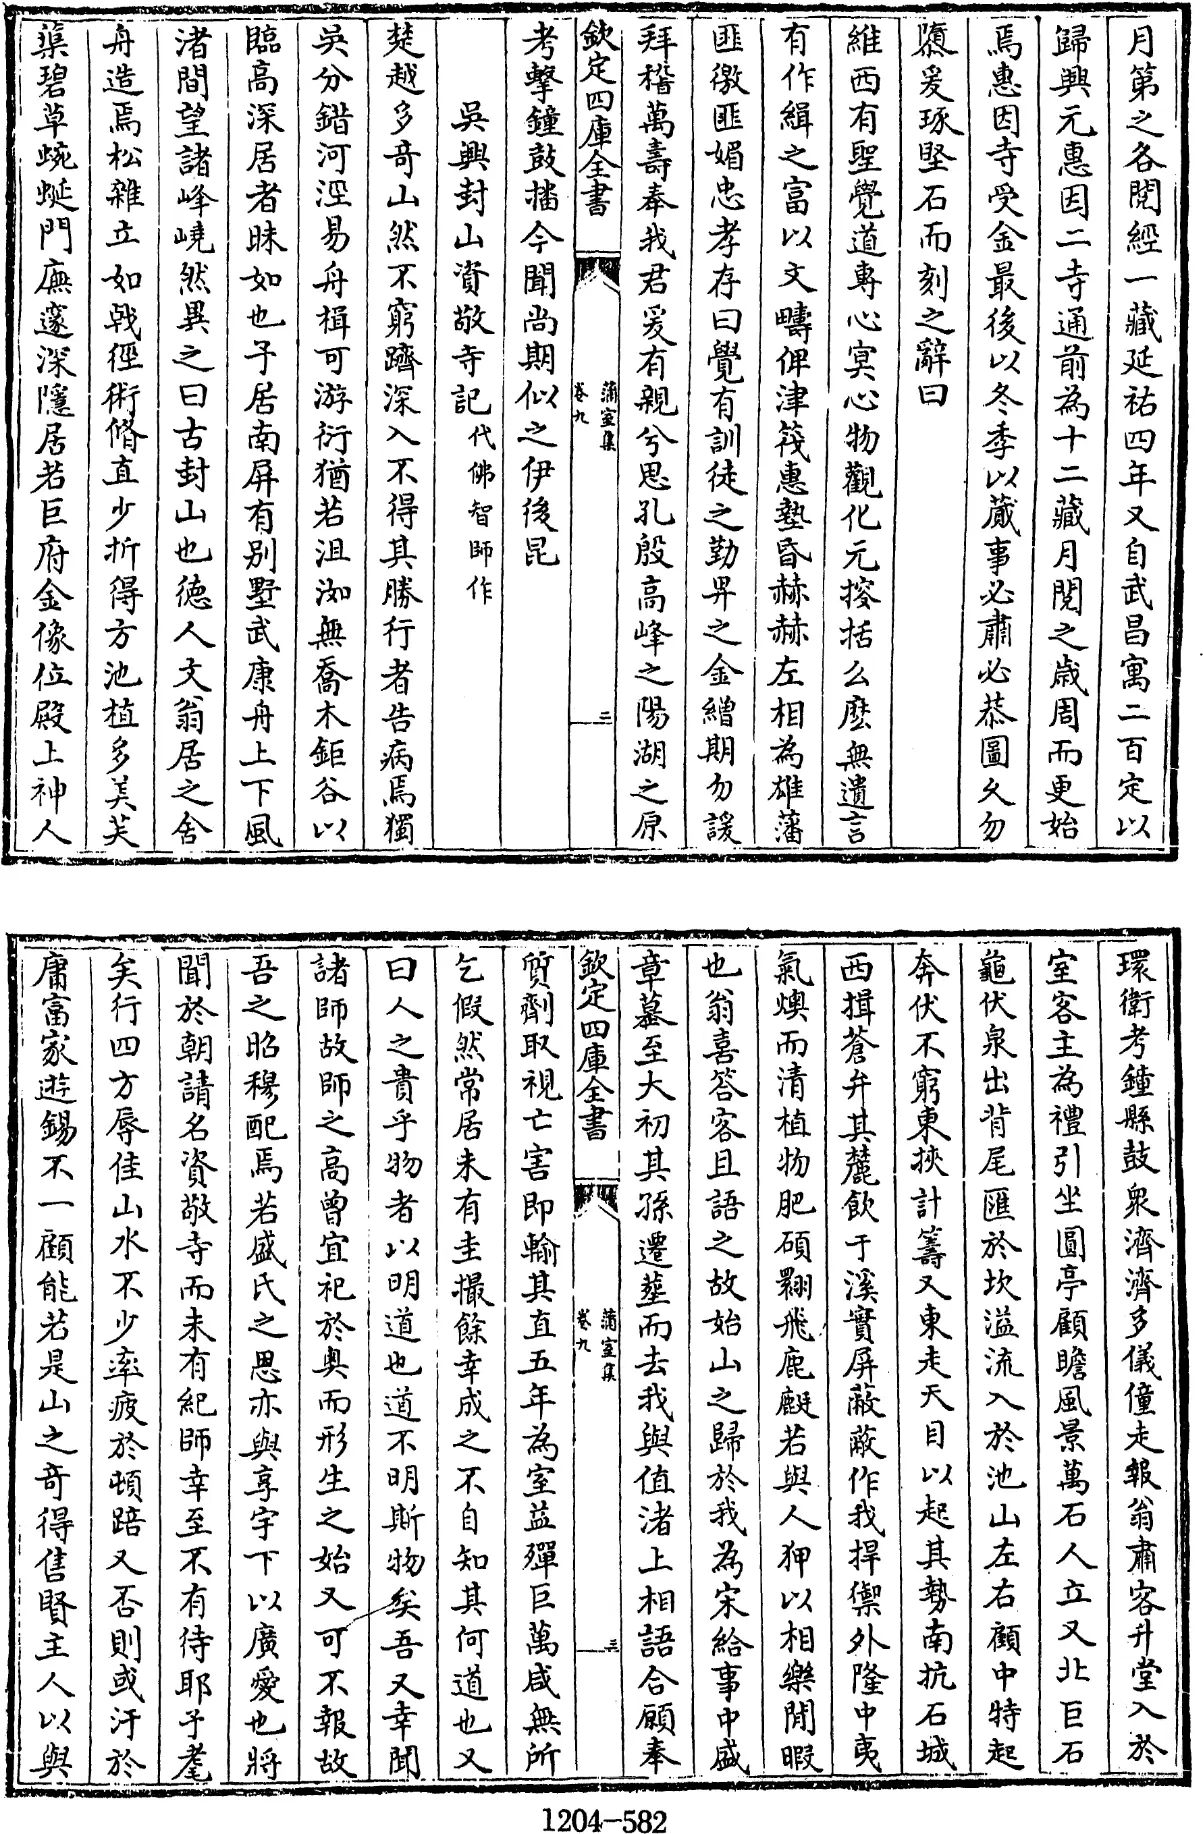 月第之各閱經一藏延祐四年又自武昌寓二百定以
歸興元惠因二寺通前為十二藏月閱之歲周而更始
焉惠因寺受金最後以冬季以蕆事必肅必恭圖久勿
隳爰琢堅石而刻之辭曰
維西有聖覺道專心冥心物觀化元揆括么麽無遺言
有作緝之富以文疇俾津筏惠墊昏赫赫左相為雄藩
匪徼匪媚忠孝存曰覺有訓徒之勤畀之金繒期勿諼
拜稽萬壽奉我君爰有親兮思孔殷高峰之陽湖之原
欽定四庫全書
蒲室集
卷九
二
考擊鐘鼓播今聞尚期似之伊後昆
吳興封山資敬寺記代佛智師作
楚越多奇山然不窮躋深入不得其勝行者告病焉獨
吳分錯河涇易舟楫可游衍猶若沮洳無喬木鉅谷以
臨高深居者昧如也予居南屏有別墅武康舟上下風
渚間望諸峰嶢然異之曰古封山也德人文翁居之舍
舟造焉松雜立如戟徑術脩直少折得方池植多美芙
蕖碧草蜿蜒門廡邃深隱居若巨府金像位殿上神人
環衛考鐘縣鼓衆濟濟多儀僮走報翁肅客升堂入於
室客主為禮引坐圓亭顧瞻風景萬石人立又北巨石
龜伏泉出背尾匯於坎溢流入於池山左右顧中特起
奔伏不窮東挾計籌又東走天目以起其勢南抗石城
西揖蒼弁其麓飲于溪實屏蔽蔽作我捍禦外隆中夷
氣燠而清植物肥碩翾飛鹿麛若與人狎以相樂閒暇
也翁喜答客且語之故始山之歸於我為宋給事中盛
章墓至大初其孫遷塟而去我與值渚上相語合願奉
欽定四庫全書
蒲室集
卷九
三
質劑取視亡害即輸其直五年為室益殫巨萬咸無所
乞假然常居未有圭撮餘幸成之不自知其何道也又
曰人之貴乎物者以明道也道不明斯物矣吾又幸聞
諸師故師之高曾宜祀於奥而形生之始又可不報故
吾之昭穆配焉若盛氏之思亦與享宇下以廣愛也將
聞於朝請名資敬寺而未有紀師幸至不有待耶予耄
矣行四方辱佳山水不少率疲於頓踣又否則或汙於
庸富家遊錫不一顧能若是山之奇得售賢主人以與
1204-582